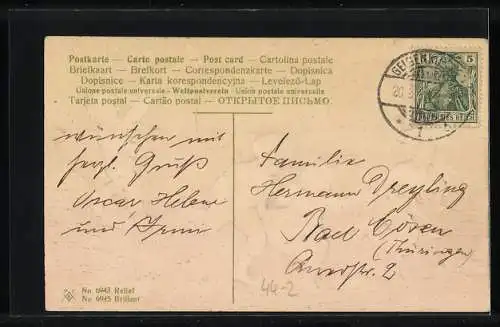 Postkarte — Carte postale — Post card — Cartolina postale
Briefkaart — Brefkort — Correspondenzkarte — Dopisnica
Dopisnice — Karta korespondencyjna — Levelező-Lap
Unione postale universale - Weltpostverein - Unión postale universelle
Tarjeta postal — Cartão postal — ОТКРЫТОЕ ПИСЬМО.
5
wünschen mit
herzl. Gruß
Oscar Helene
und
Familie
Hermann Dreyling
Bad Kösen
(Thüringen)
2
44-2
No 6943 Relief
No 6945 Brillant